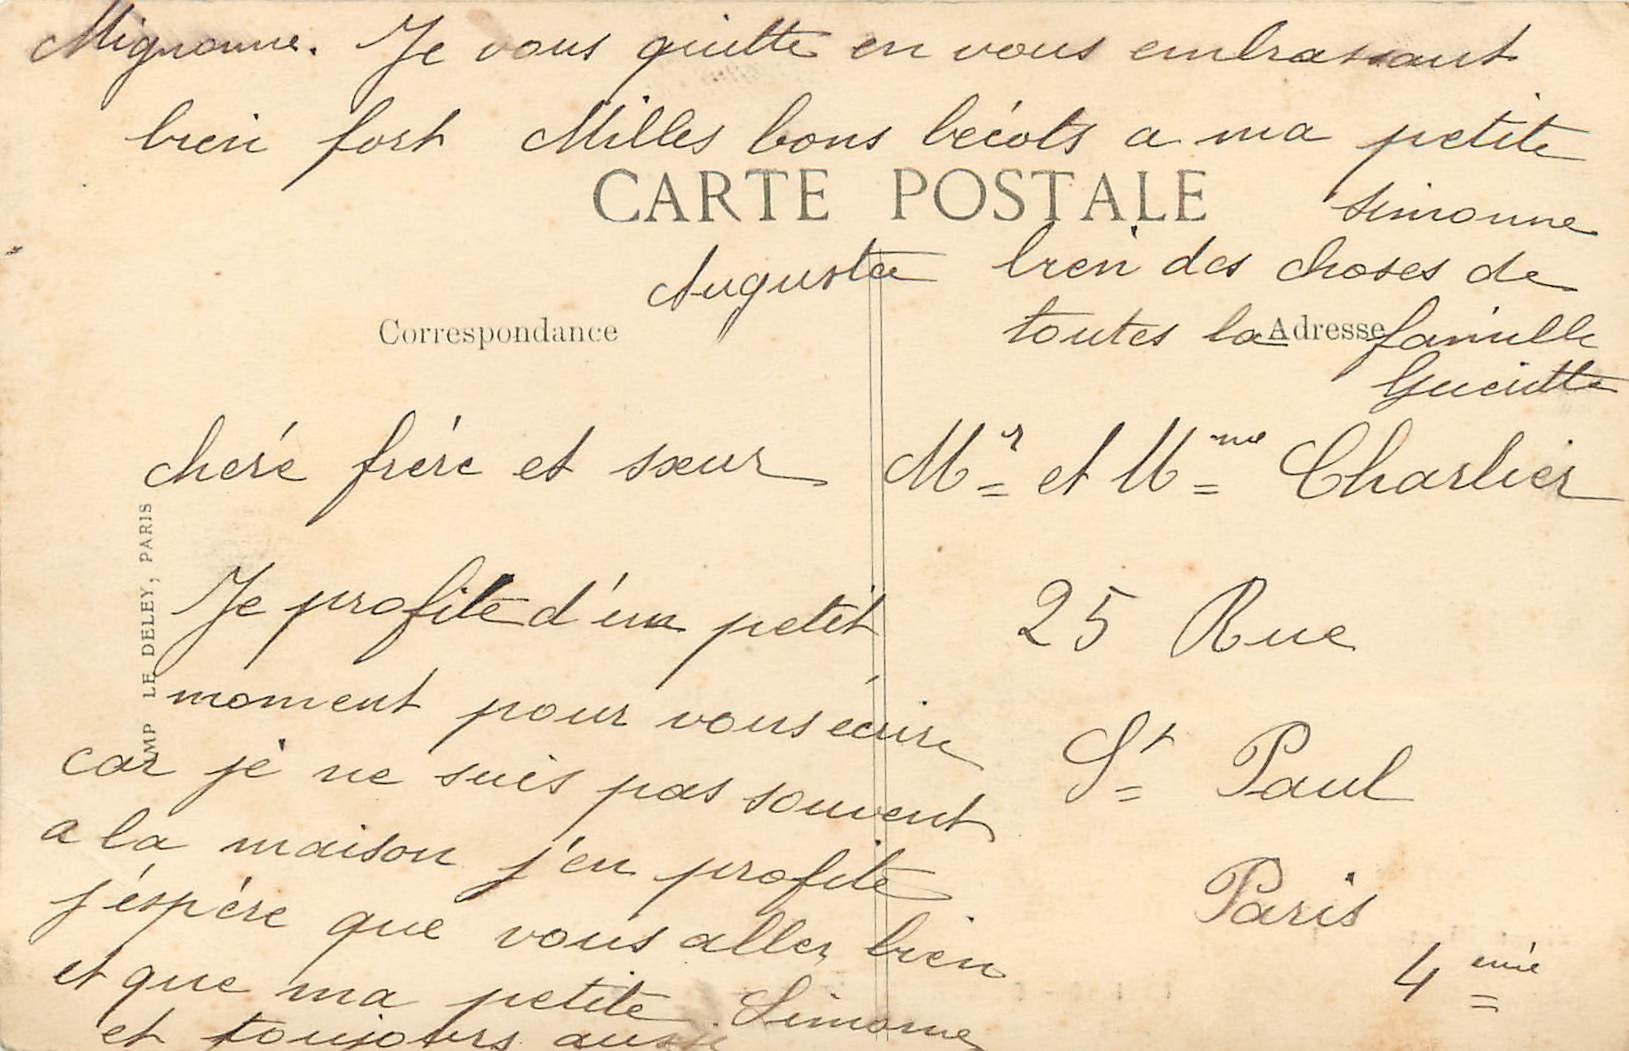 Mignonne. Je vous quitte en vous embrassant
bien fort Milles bons bécots a ma petite
Simonne
CARTE POSTALE
Augusta bien des choses de
toutes la famille
Correspondance
Adresse
chéré frére et sœur
Mr et Mme Charlier
Je profite d'un petit
moment pour vous écrire
car jé ne suis pas souvent
a la maison j'en profite
j'éspére que vous aller bien
et que ma petite Simonne
et toujours aussi
25 Rue
St Paul
Paris
4 emé
IMP LE DELEY, PARIS